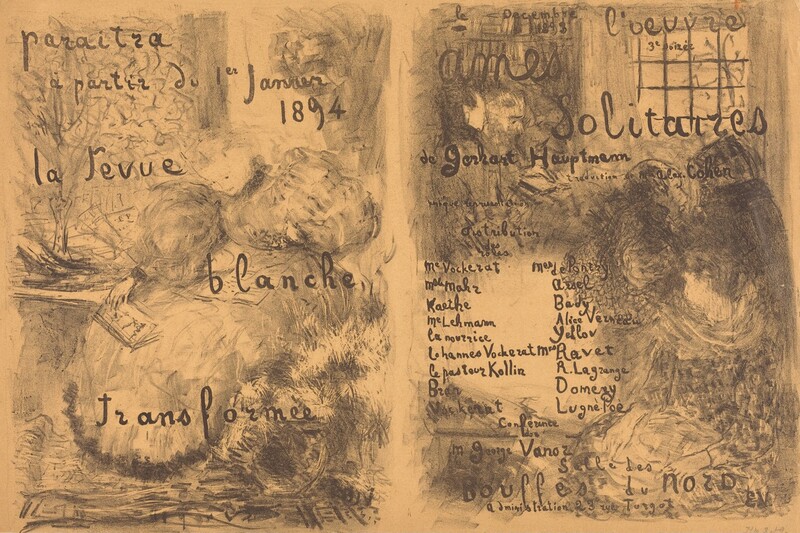 paraitra
à partir du 1er Janvier
1894
la revue
blanche
transformée
le Decembre
1893
l'oeuvre
3e soirée
ames
Solitaires
de Gerhart Hauptmann
traduction de M. alex. Cohen
unique représentation
distribution
des
roles
Me Vockerat Mes de Pontry
Melle Mahr Arsel
Kaethe Bady
Me Lehmann Alice Verneuil
la nourrice Yellov
Johannes Vockerat Mrs Ravet
le pasteur Kollin R. Lagrange
Bran Domeny
Vockerat Lugné Poë
Conférence
de
M. George Vanor
Salle des
Bouffes du NORD
administration, 23 rue Turgot
EV
EV